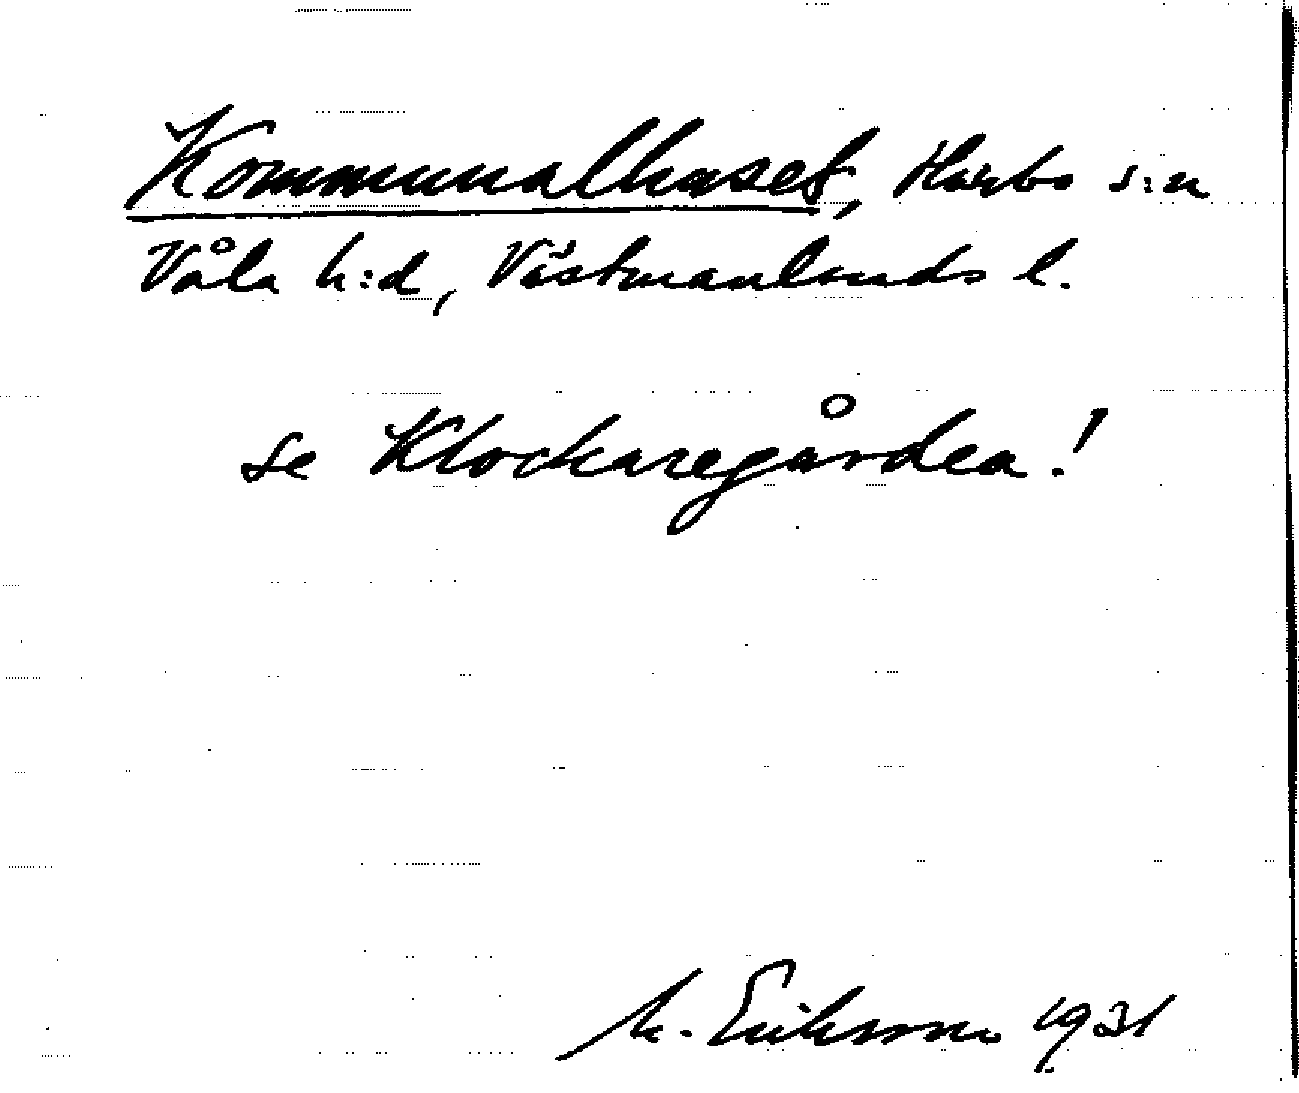 Kommunalhuset, Harbo s:n
Våla h:d, Västmanlands l.
se Klockaregården!
M. Eriksson 1931